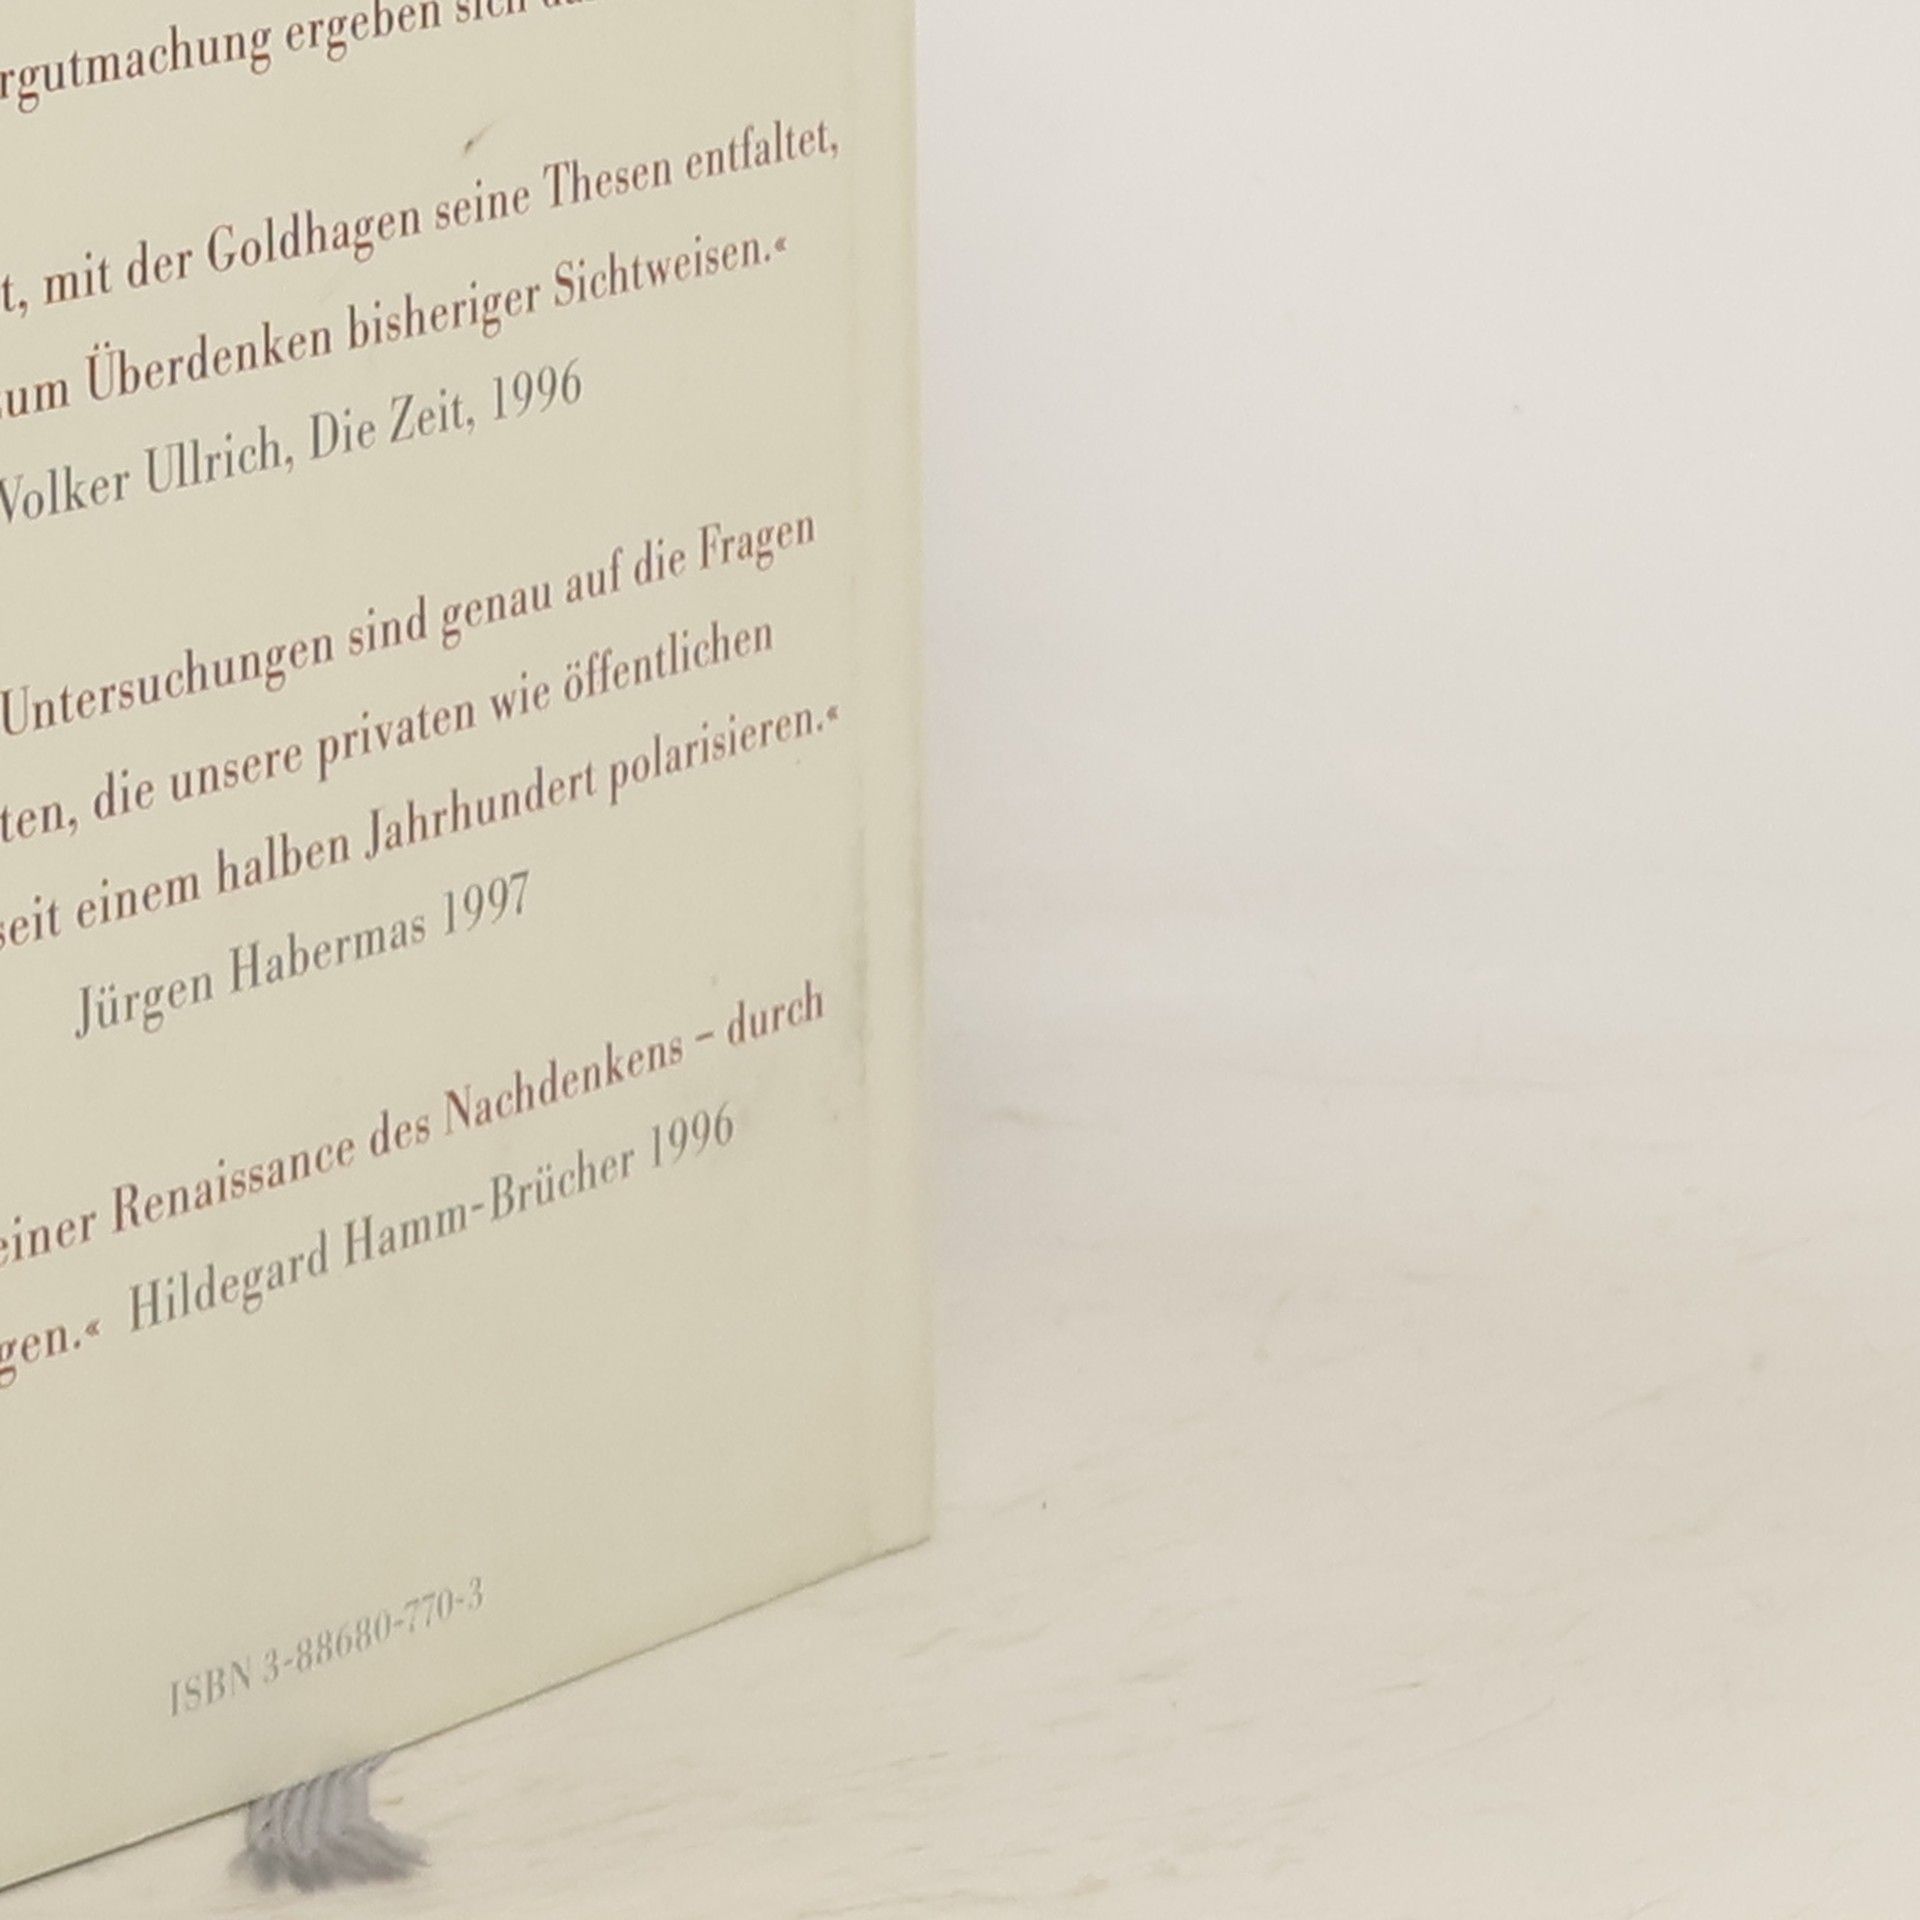 rgutmachung ergeben sich
t, mit der Goldhagen seine Thesen entfaltet,
um Überdenken bisheriger Sichtweisen.«
Volker Ullrich, Die Zeit, 1996
Untersuchungen sind genau auf die Fragen
ten, die unsere privaten wie öffentlichen
seit einem halben Jahrhundert polarisieren.«
Jürgen Habermas 1997
einer Renaissance des Nachdenkens – durch
gen.« Hildegard Hamm-Brücher 1996
ISBN 3-88680-770-3